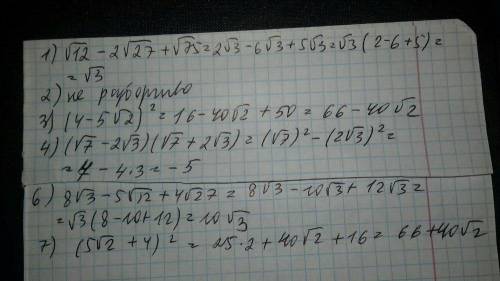 1) √12 - 2√27 + √75 = 2√3 - 6√3 + 5√3 = √3 (2-6+5) =
= √3
2) не разборчиво
3) (4-5√2)² = 16 - 40√2 + 50 = 66 - 40√2
4) (√7 - 2√3)(√7 + 2√3) = (√7)² - (2√3)² =
= 7 - 4·3 = -5
6) 8√3 - 5√12 + 4√27 = 8√3 - 10√3 + 12√3 =
= √3 (8-10+12) = 10√3
7) (5√2 + 4)² = 25·2 + 40√2 + 16 = 66 + 40√2